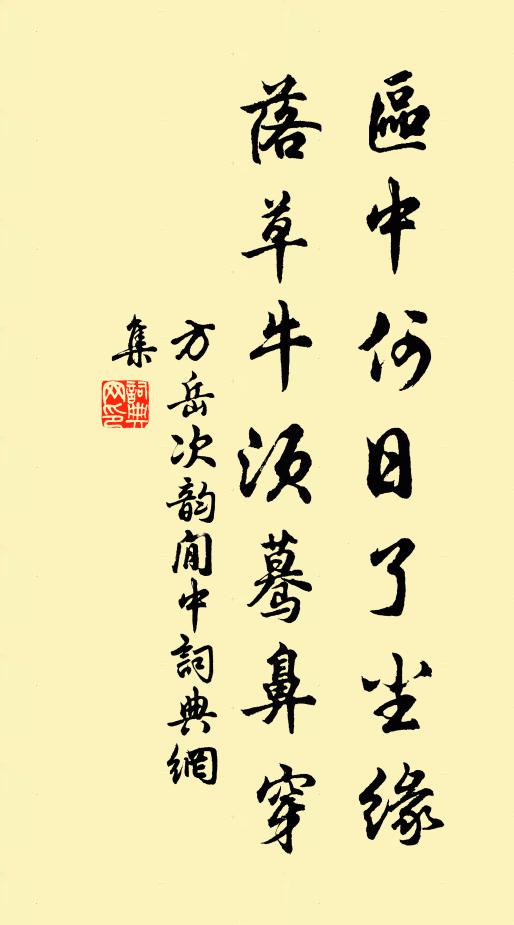 區中何日了尘緣
落草牛須蓦鼻穿
方岳次韵閒中詞典網
集
詞典
网印